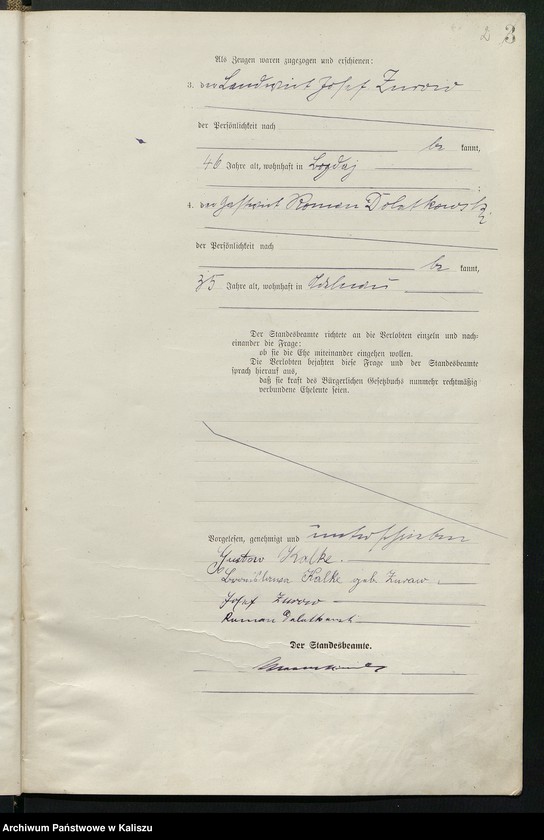 2 3
Als Zeugen waren zugezogen und erschienen:
3. der Landwirt Josef Zuraw
der Persönlichkeit nach
be kannt,
46 Jahre alt, wohnhaft in Bogdaj
;
4. der Gastwirt Roman Dolatkowski
der Persönlichkeit nach
be kannt,
35 Jahre alt, wohnhaft in
Der Standesbeamte richtete an die Verlobten einzeln und nach-
einander die Frage:
ob sie die Ehe miteinander eingehen wollen.
Die Verlobten bejahten diese Frage und der Standesbeamte
sprach hierauf aus,
daß sie kraft des Bürgerlichen Gesetzbuchs nunmehr rechtmäßig
verbundene Eheleute seien.
Vorgelesen, genehmigt und unterschrieben
Gustav Kalke.
Bronislawa Kalke geb Zuraw
Josef Zuraw
Roman Dolatkowski
Der Standesbeamte.
Archiwum Państwowe w Kaliszu